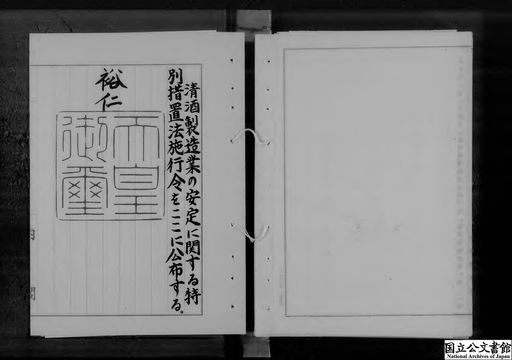 清酒製造業の安定に関する特
別措置法施行令をここに公布する。
裕仁
天皇
御璽
内閣
国立公文書館
National Archives of Japan